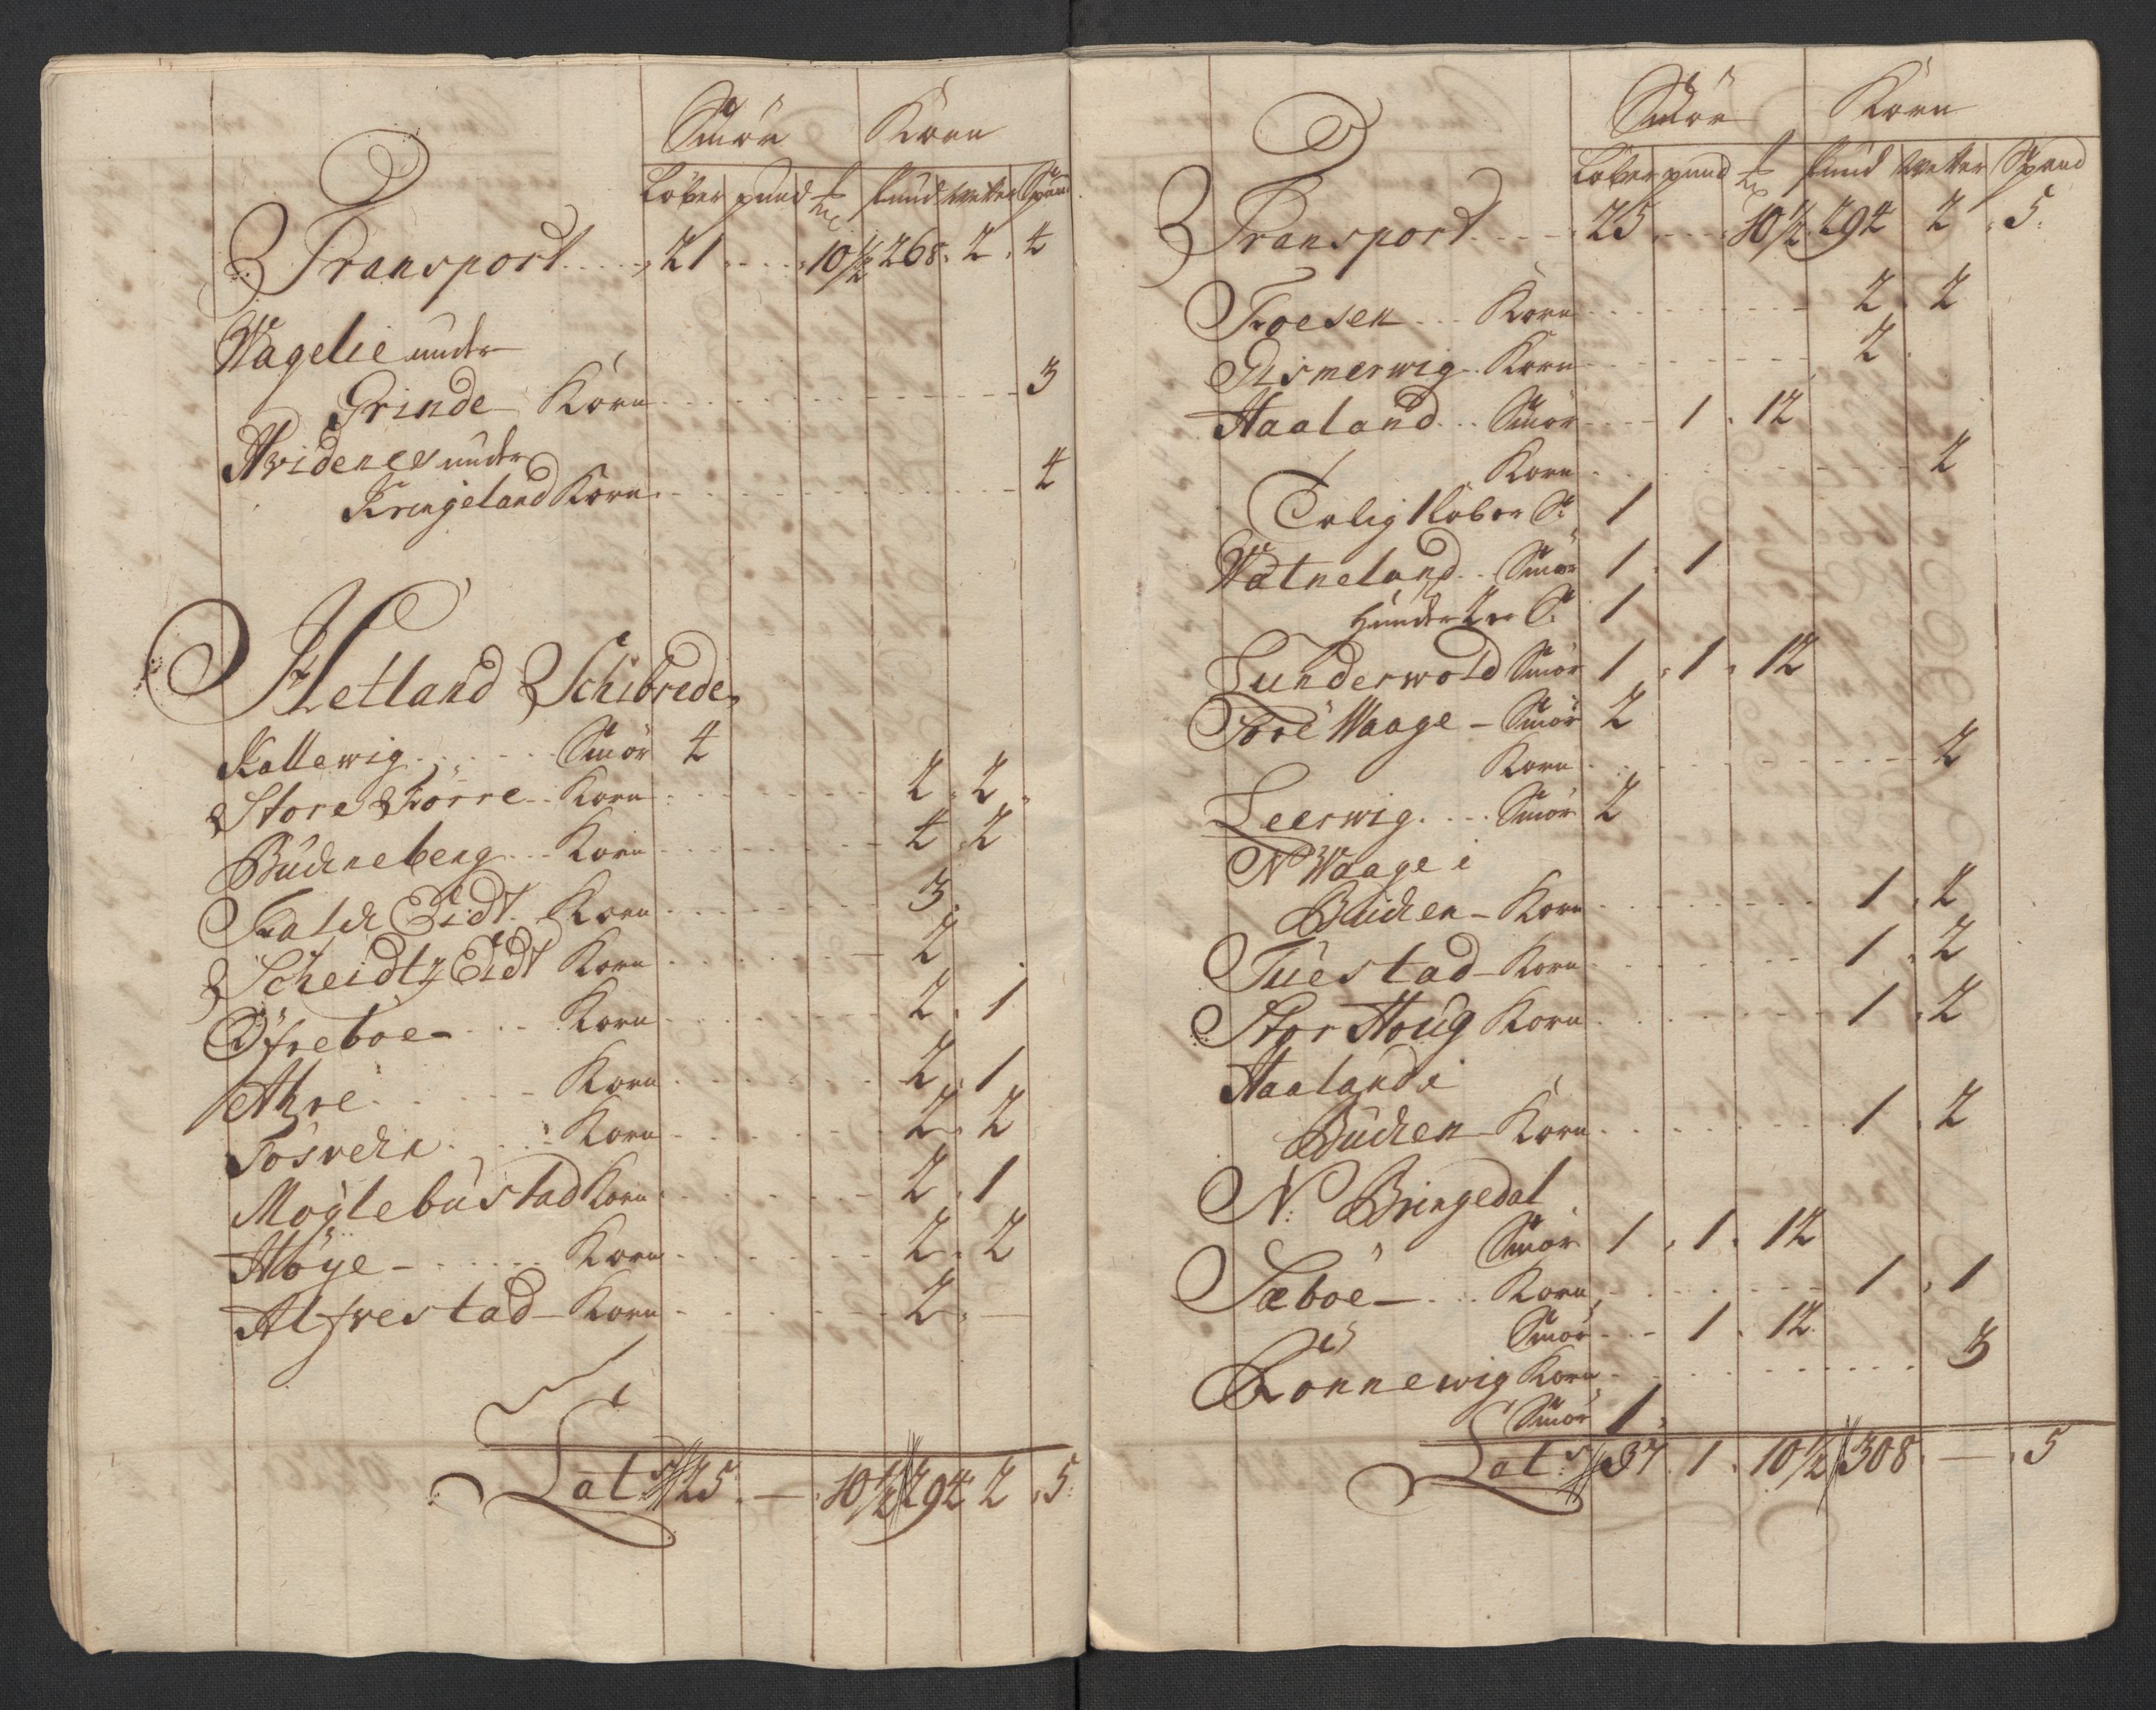 Smör Korn
Löber pund ℔ pund wetter Spand
Transport 21 10½ 268 2 4
Wagelie under
Grinde Korn 3
Hvidenes under
Kringeland Korn 4
Hetland Schibrede
Kallewig Smör 4
Store Förre Korn 2 2
Buckneberg Korn 4 2
Falck Eidt Korn 3
Scheidtz Eidt Korn 2
Öfreboe Korn 2 1
Ahre Korn 2 1
Fosvechn Korn 2 2
Moglebustad Korn 2 1
Höye Korn 2 2
Alfvestad Korn 2
Lats 25 — 10½ 294 2 5
Smör Korn
Löber pund ℔ pund wetter Spand
Transport 25 10½ 294 2 5
Foesen Korn 2 2
Gismerwig Korn 2
Haaland Smör 1 12
Korn 2
1
Watneland Smör 1 1
1
Sunderwold Smör 1 1 12
Waage Smör 2
Korn 2
Leerwig Smör 2
N Waage i
Buchen Korn 1 2
Tuestad Korn 1 2
Stor Houg Korn 1 2
Haaland i
Buchen Korn 1 2
N: Bringedal
Smör 1 1 12
Sæboe Korn 1 1
Smör 1 12
Rönnewig Korn 3
Smör 1
Lats 37 1 10½ 308 — 5